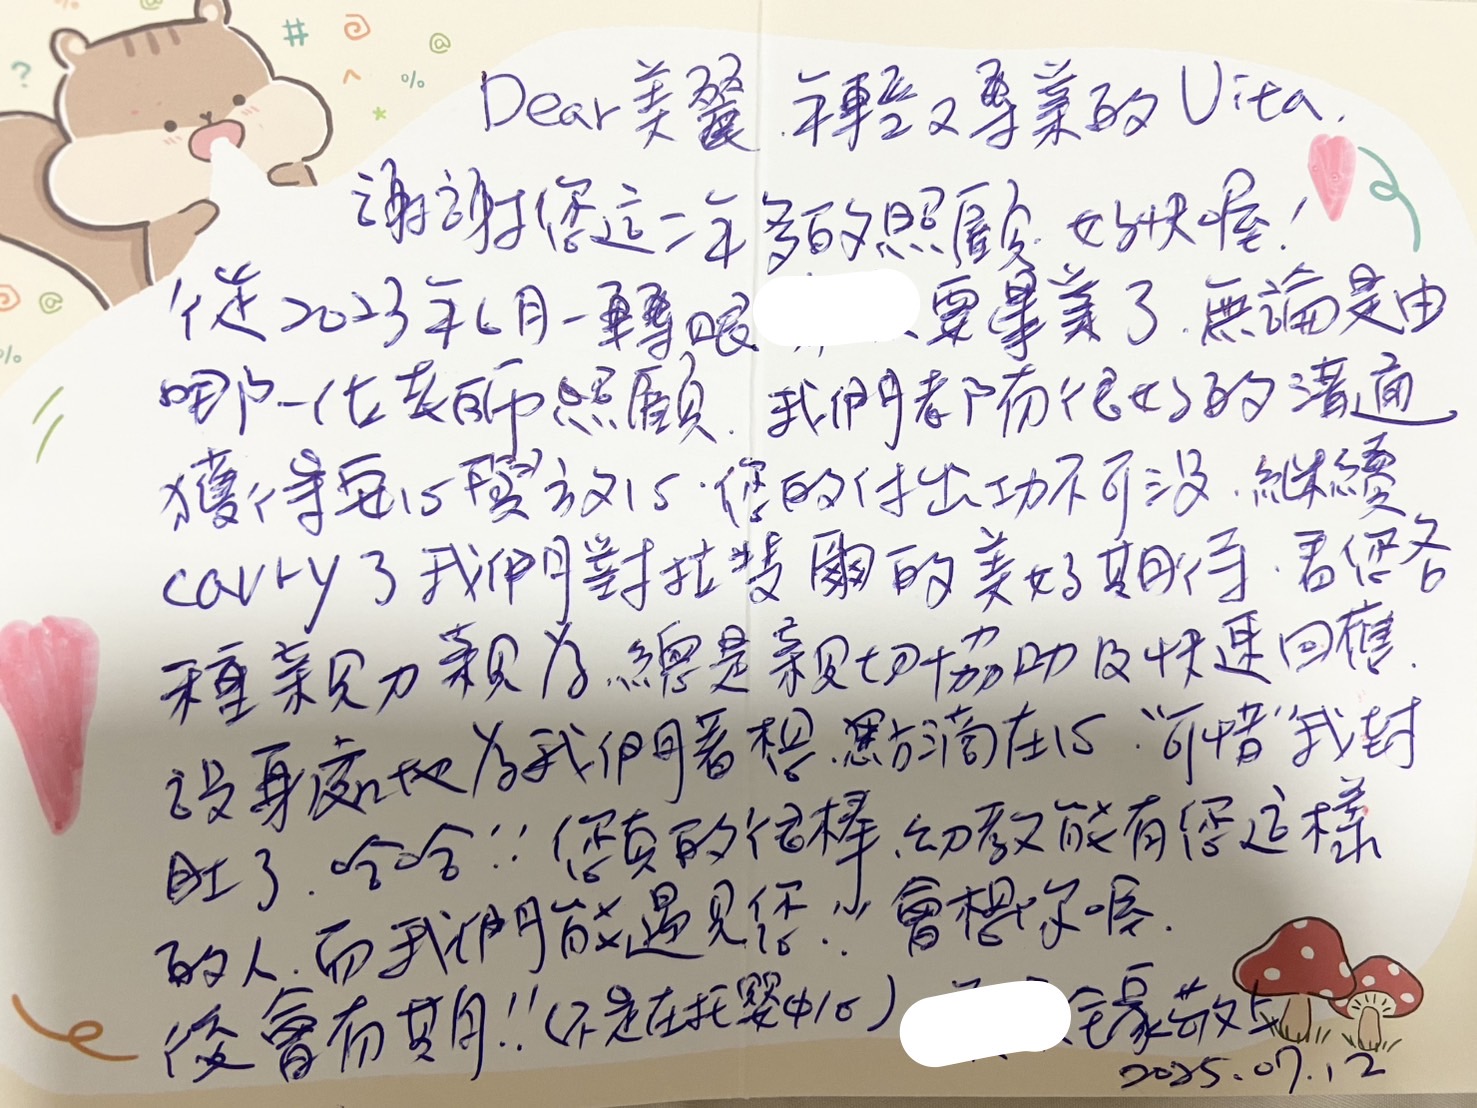 Dear 美麗、年輕又專業的 Vita,
謝謝您這二年多的照顧、好快喔!
從2023年6月一轉眼 要畢業了、無論是由
哪一位老師照顧、我們都有很好的溝通
獲得安心與放心、您的付出功不可沒、繼續
carry了我們對拉斐爾的美好期待、看您各
種親力親為、總是親切協助及快速回應、
設身處地為我們著想、點滴在心、"可惜"我封
肚了、哈哈!! 您真的很棒、幼教能有您這樣
的人、而我們能遇見您!! 會想你唷、
後會有期!!(不是在托嬰中心) 全家敬上
2025.07.12